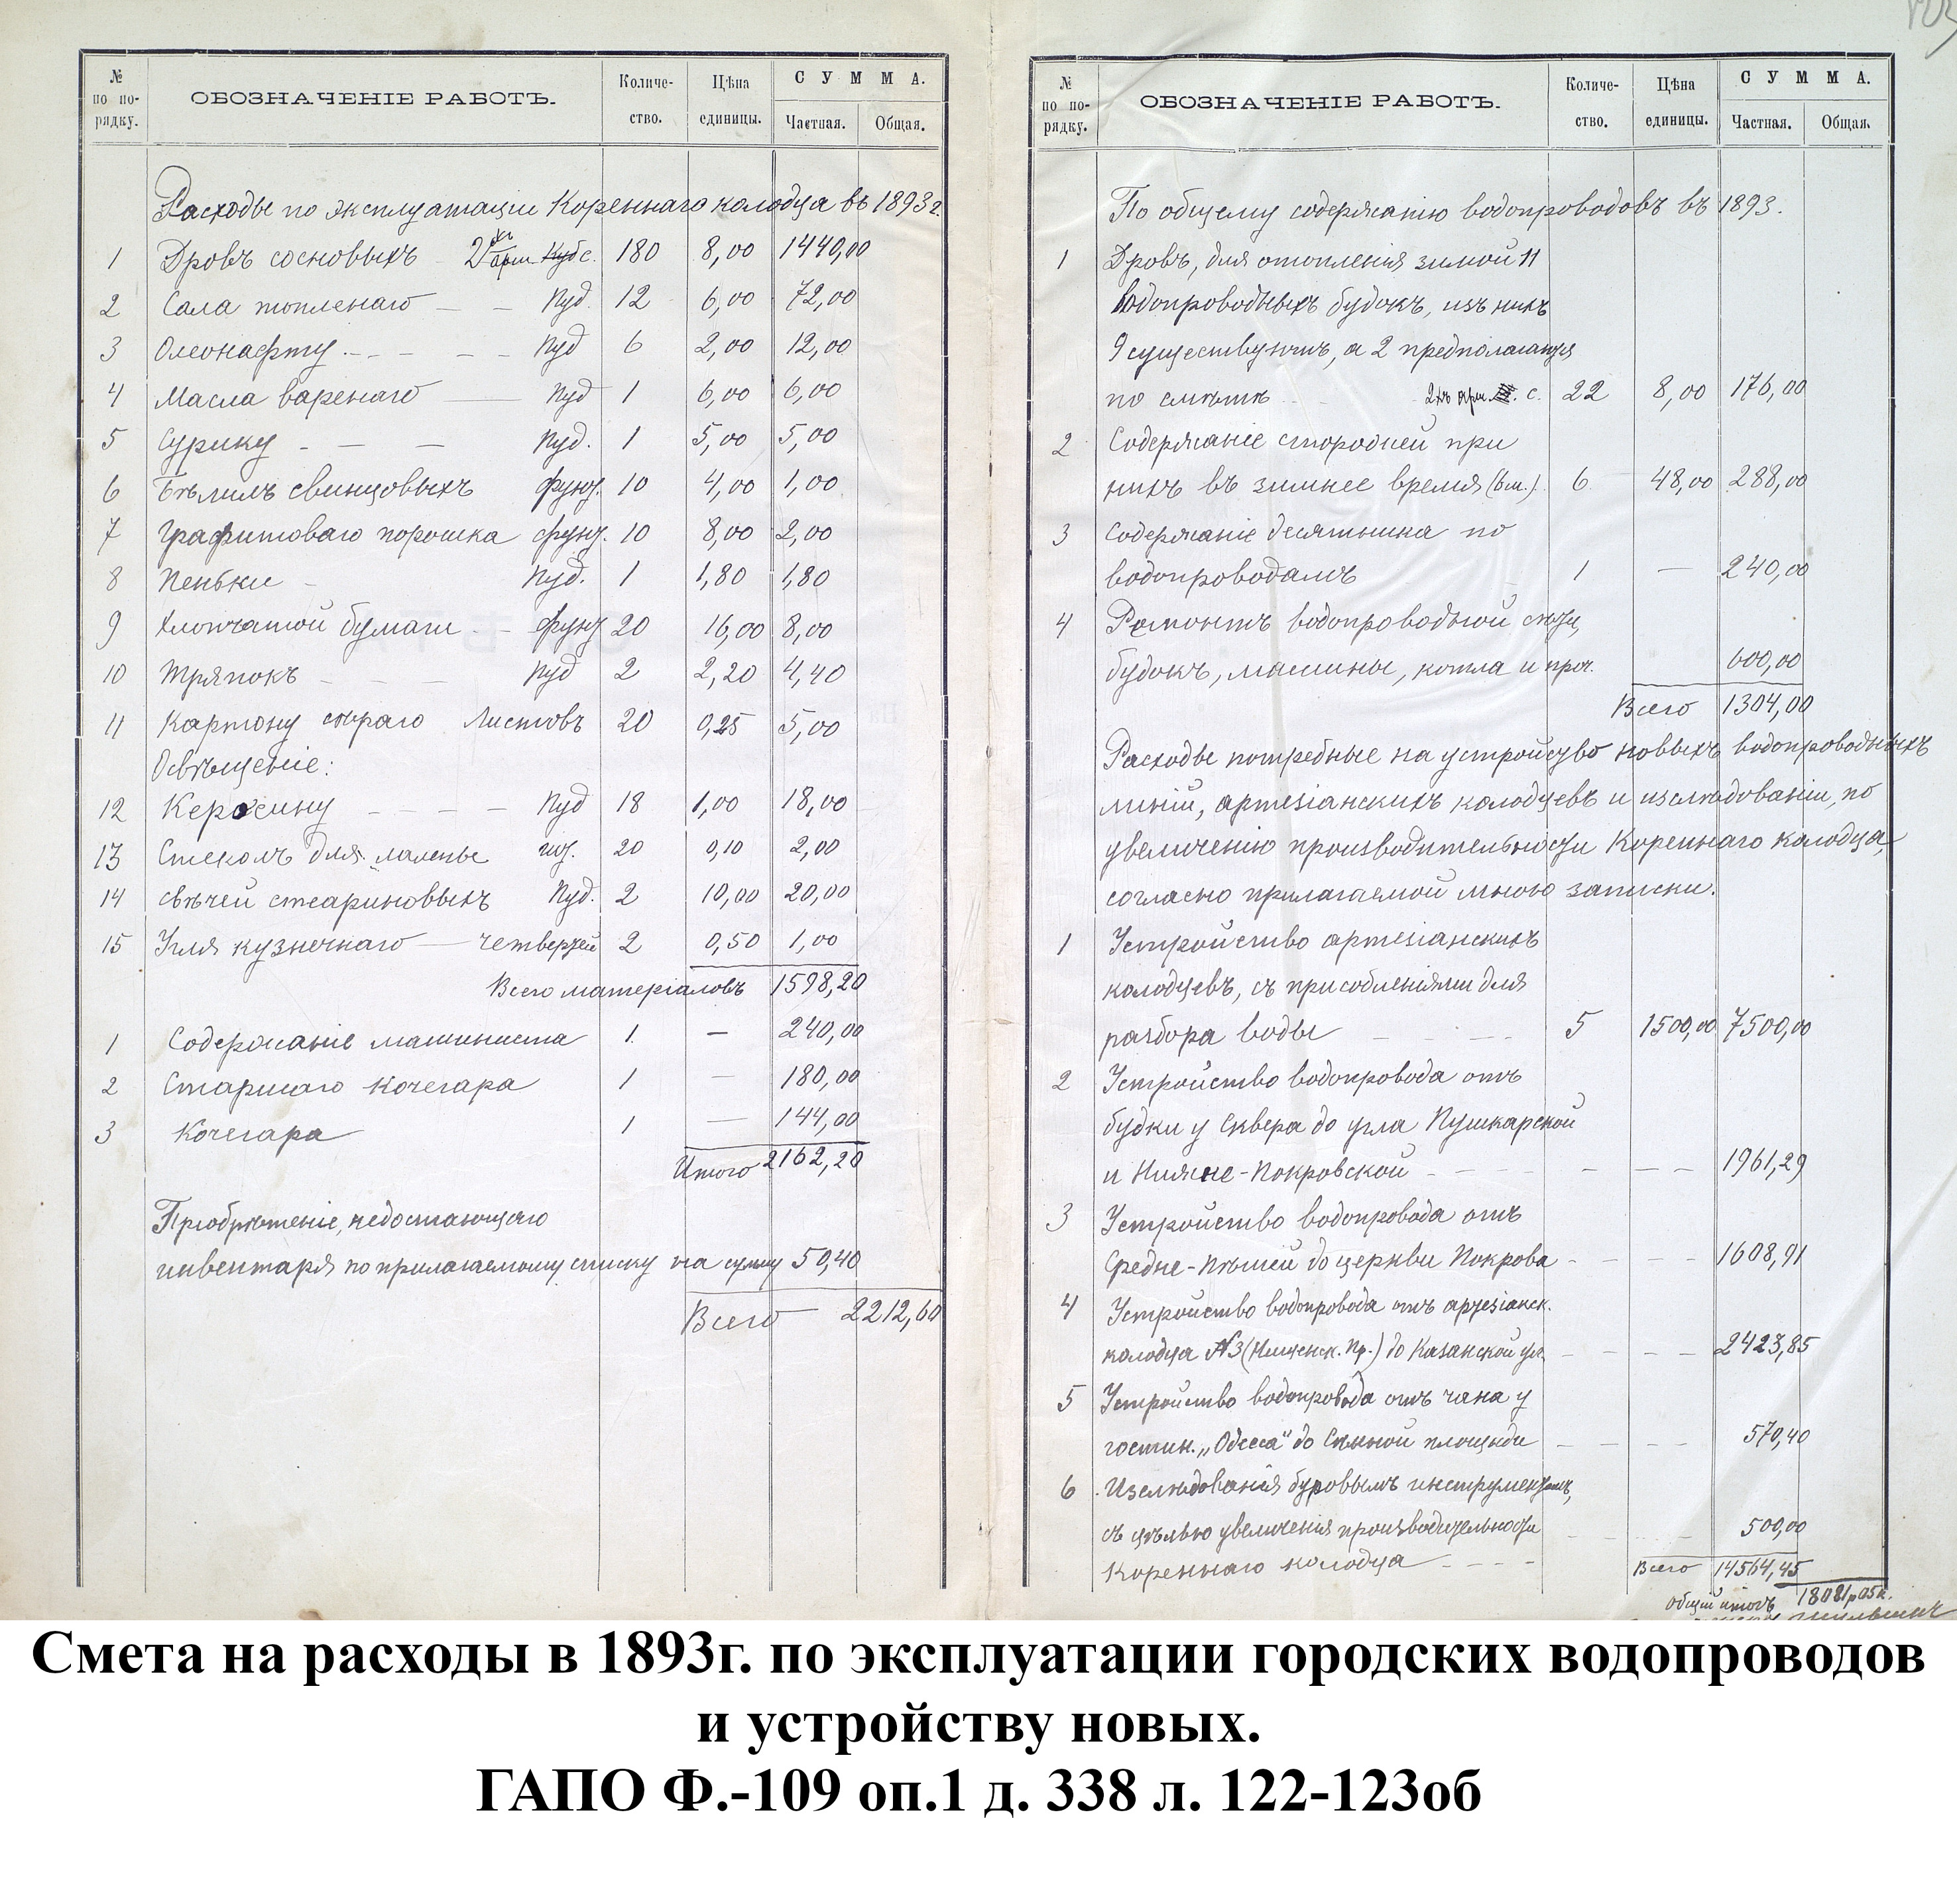 № по по- рядку. ОБОЗНАЧЕНІЕ РАБОТЪ. Количе- ство. Цѣна единицы. СУММА. Частная. Общая.
Расходы по эксплуатаціи Кореннаго колодца въ 1893 г.
1 Дровъ сосновыхъ 2хъ арш. куб с. 180 8,00 1440,00
2 Сала топленаго — — Пуд. 12 6,00 72,00
3 Олеонафту — — — — Пуд 6 2,00 12,00
4 Масла варенаго — Пуд 1 6,00 6,00
5 Сурику — — — Пуд. 1 5,00 5,00
6 Бѣлилъ свинцовыхъ фунт. 10 4,00 1,00
7 Графитоваго порошка фунт. 10 8,00 2,00
8 Пеньки — Пуд. 1 1,80 1,80
9 Хлопчатой бумаги — фунт 20 16,00 8,00
10 Тряпокъ — — — Пуд 2 2,20 4,40
11 Картону сѣраго Листовъ 20 0,25 5,00
Освѣщеніе:
12 Керосину — — — Пуд 18 1,00 18,00
13 Стеколъ для лампы шт. 20 0,10 2,00
14 Свѣчей стеариновыхъ Пуд. 2 10,00 20,00
15 Угля кузнечнаго — четвертей 2 0,50 1,00
Всего матеріаловъ 1598,20
1 Содержаніе машиниста 1. — 240,00
2 Старшаго кочегара 1 — 180,00
3 Кочегара 1 — 144,00
Итого 2162,20
Пріобрѣтеніе, недостающаго
инвентаря по прилагаемому списку на сумму 50,40
Всего — 2212,60
№ по по- рядку. ОБОЗНАЧЕНІЕ РАБОТЪ. Количе- ство. Цѣна единицы. СУММА. Частная. Общая.
По общему содержанію водопроводовъ въ 1893.
1 Дровъ, для отопленія зимой 11
водопроводныхъ будокъ, изъ нихъ
9 существуютъ, а 2 предполагаются
по смѣтѣ 2хъ арш. с. 22 8,00 176,00
2 Содержаніе сторожей при
нихъ въ зимнее время (6 м.) 6 48,00 288,00
3 Содержаніе десятника по
водопроводамъ 1 — 240,00
4 Ремонтъ водопроводной сѣти,
будокъ, машины, котла и проч. 600,00
Всего 1304,00
Расходы потребные на устройство новыхъ водопроводныхъ
линій, артезіанскихъ колодцевъ и изслѣдованіи, по
увеличенію производительности Кореннаго колодца,
согласно прилагаемой мною записки.
1 Устройство артезіанскихъ
колодцевъ, съ приспобленіями для
разбора воды — — — 5 1500,00 7500,00
2 Устройство водопровода отъ
будки у Сквера до угла Пушкарской
и Нижне-Покровской — — — — — — 1961,29
3 Устройство водопровода отъ
Средне-Пѣшей до церкви Покрова — — — — 1608,91
4 Устройство водопровода отъ артезіанск.
колодца №3 (Нищенск. Пр.) до Казанской ул. — — — — 2423,85
5 Устройство водопровода отъ чана у
гостин. „Одесса“ до Сѣнной площади — — — — 570,40
6 Изслѣдованія буровымъ инструментомъ,
съ цѣлью увеличенія производительности 500,00
Кореннаго колодца — — — Всего 14564,45
Общій итогъ 18081р05к.
Смета на расходы в 1893г. по эксплуатации городских водопроводов
и устройству новых.
ГАПО Ф.-109 оп.1 д. 338 л. 122-123об